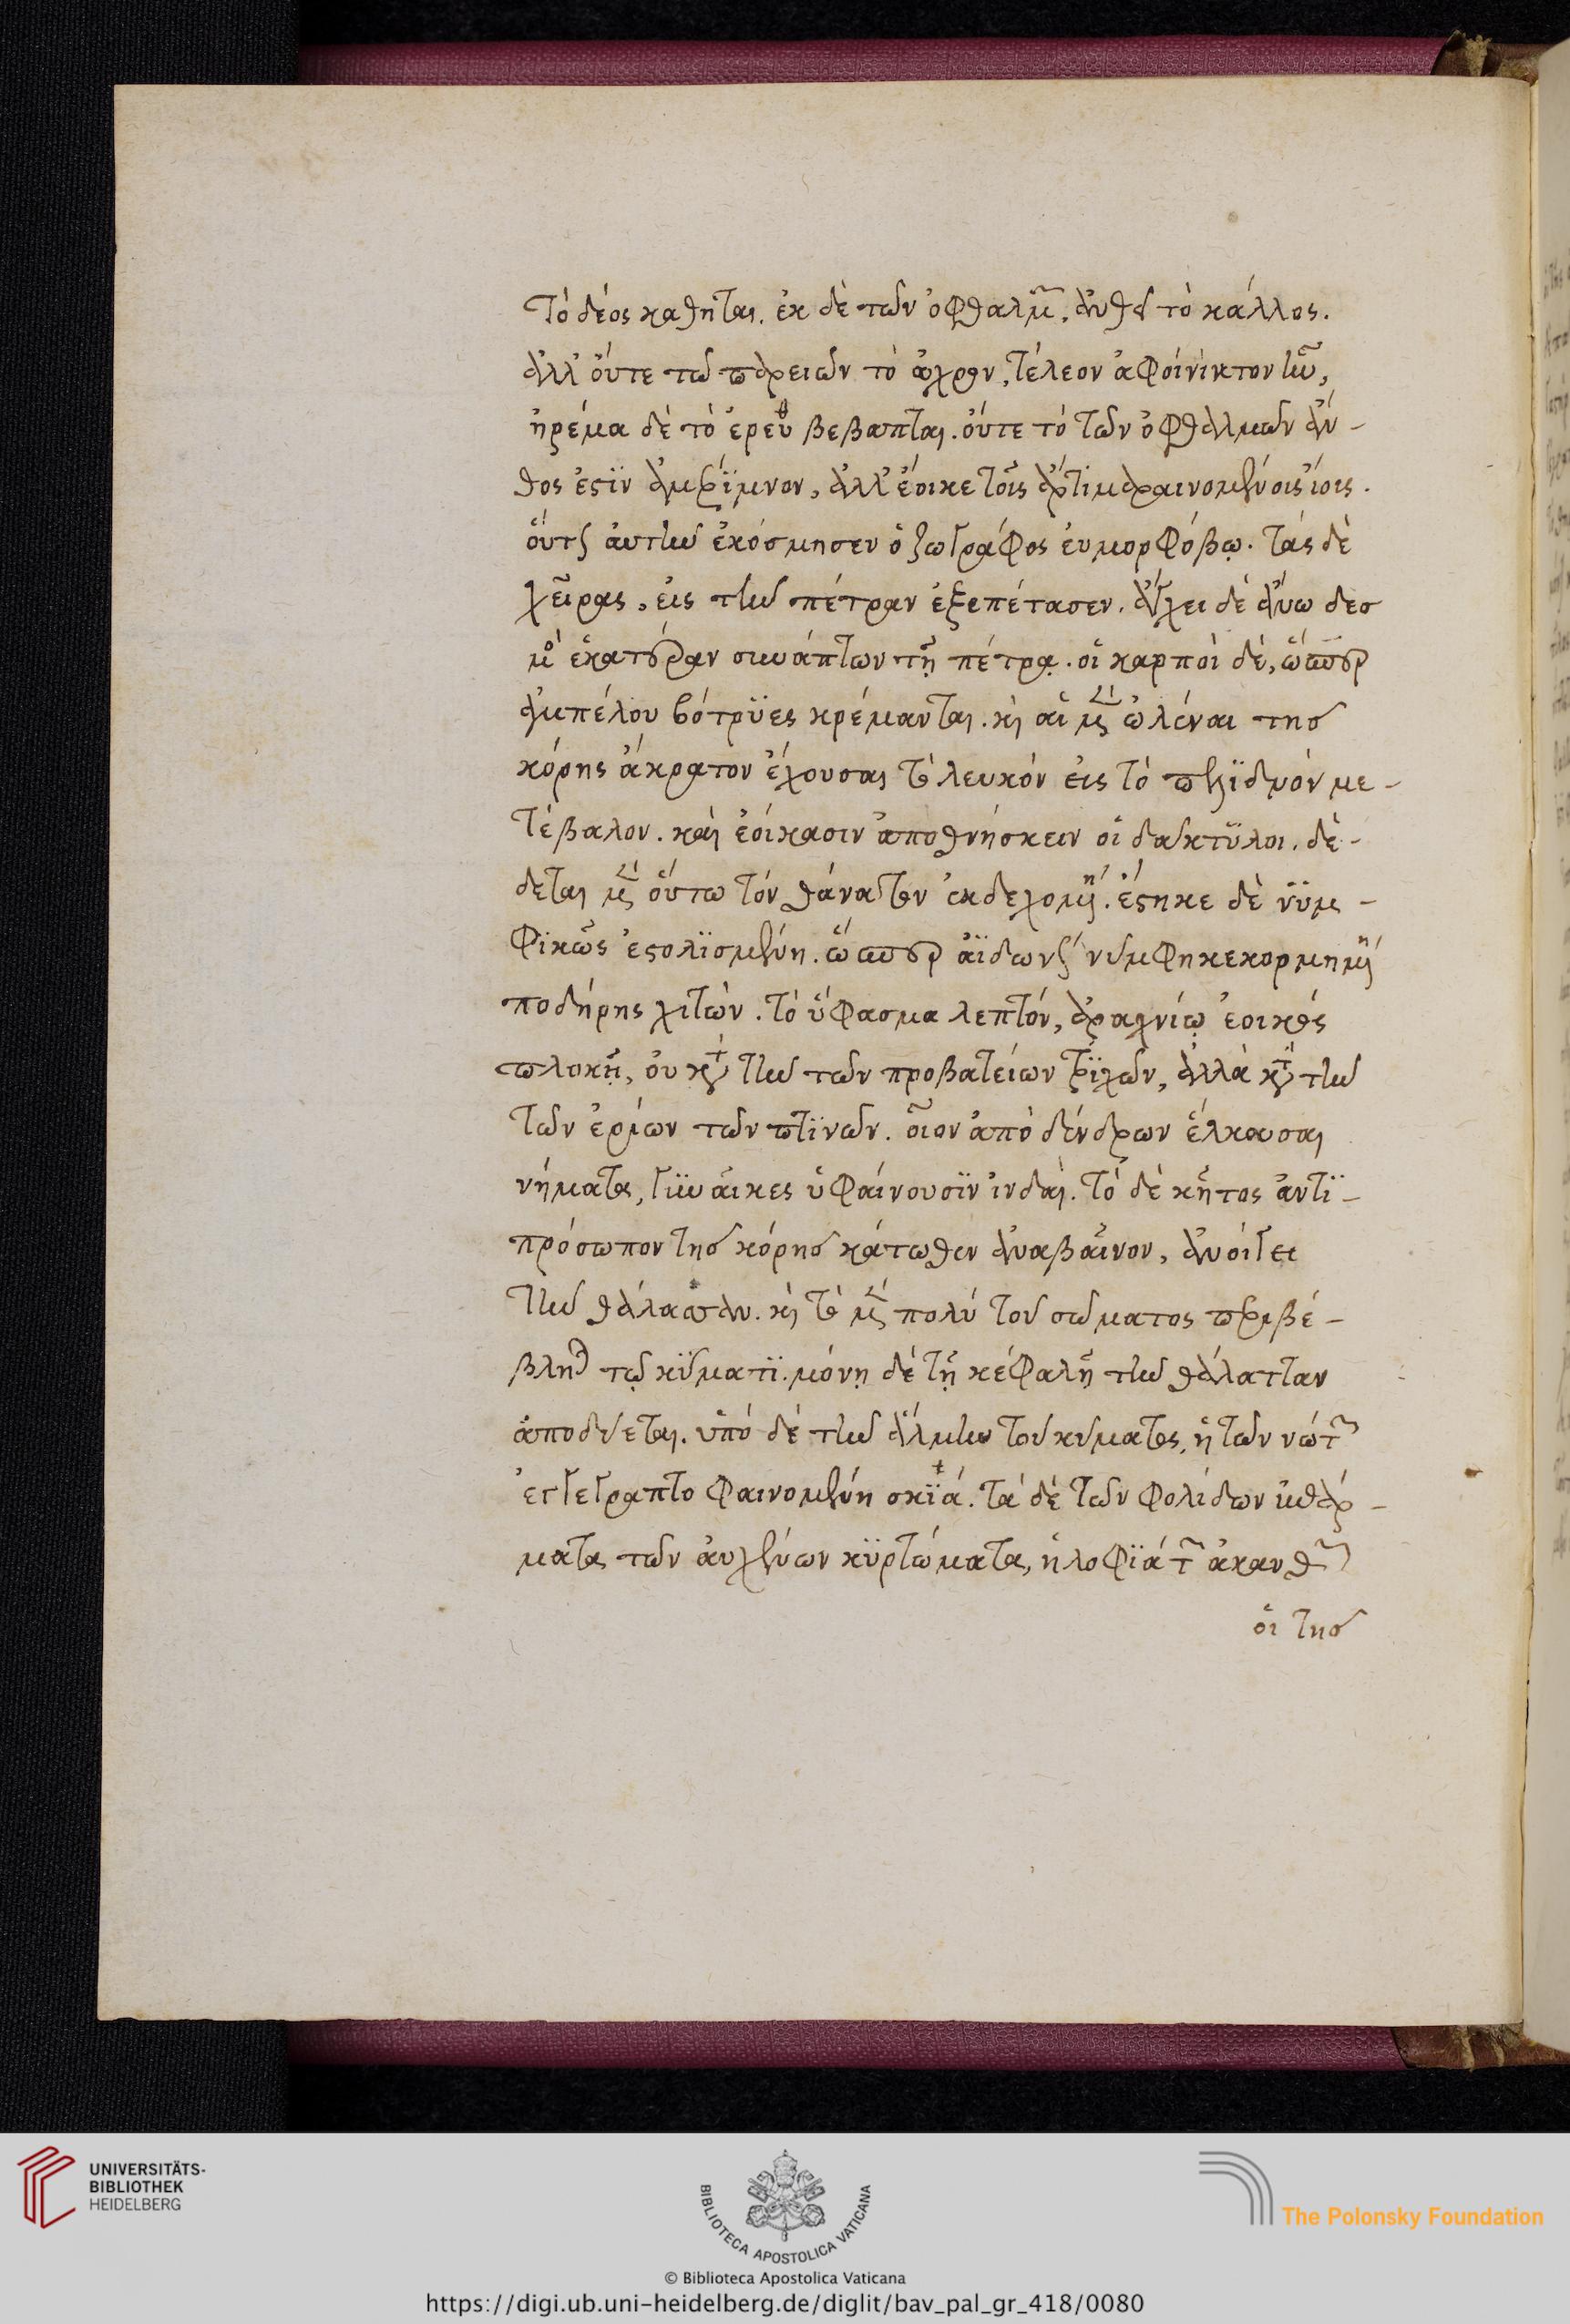 τὸ δέος κάθηται. ἐκ δὲ τῶν ὀφθαλμῶν, ἀνθεῖ τὸ κάλλος.
ἀλλ' οὔτε τῶν παρειῶν τὸ ὠχρὸν, τέλεον ἀφοίνικτον ἦν,
ἠρέμα δὲ τὸ ἔρευθ βέβαπται. οὔτε τὸ τῶν ὀφθαλμῶν ἄν-
θος ἐστὶν ἀμέριμνον, ἀλλ' ἔοικε τοῖς ἄρτι μαραινομένοις ἴοις.
οὕτως αὐτὴν ἐκόσμησεν ὁ ζωγράφος εὐμόρφῳ φόβῳ. τὰς δὲ
χεῖρας, εἰς τὴν πέτραν ἐξεπέτασεν. ἄγχει δὲ ἄνω δεσ
μὸς ἑκατέραν συνάπτων τῇ πέτρᾳ. οἱ καρποὶ δὲ, ὥσπερ
ἀμπέλου βότρυες κρέμανται. καὶ αἱ μὲν ὠλέναι τῆς
κόρης ἄκρατον ἔχουσαι τὸ λευκὸν εἰς τὸ πελιδνὸν με-
τέβαλον. καὶ ἐοίκασιν ἀποθνήσκειν οἱ δάκτυλοι. δέ-
δεται μὲν οὕτω τὸν θάνατον ἐκδεχομένη. ἕστηκε δὲ νυμ-
φικῶς ἐστολισμένη. ὥσπερ ἀϊδωνεῖ νύμφη κεκοσμημένη
ποδήρης χιτών. τὸ ὕφασμα λεπτόν, ἀραχνίῳ ἐοικὸς
πλοκῇ, οὐ κατὰ τὴν τῶν προβατείων τριχῶν, ἀλλὰ κατὰ τὴν
τῶν ἐρίων τῶν πτινῶν. οἷον ἀπὸ δένδρων ἕλκουσαι
νήματα, γυναῖκες ὑφαίνουσιν ἰνδαί. τὸ δὲ κῆτος ἀντι-
πρόσωπον τῆς κόρης κάτωθεν ἀναβαῖνον, ἀνοίγει
τὴν θάλασσαν. καὶ τὸ μὲν πολὺ τοῦ σώματος περιβέ-
βληται τῷ κύματι. μόνῃ δὲ τῇ κεφαλῇ τὴν θάλατταν
ἀποδύεται. ὑπὸ δὲ τὴν ἅλμην τοῦ κύματος, ἡ τῶν νώτων
ἐγέγραπτο φαινομένη σκιά. τὰ δὲ τῶν φολίδων
ματα τῶν αὐχένων κυρτώματα, ἡ λοφιὰ τῶν ἀκανθῶν
οἱ τῆς
UNIVERSITÄTS-
BIBLIOTHEK
HEIDELBERG
BIBLIOTECA APOSTOLICA VATICANA
The Polonsky Foundation
© Biblioteca Apostolica Vaticana
https://digi.ub.uni-heidelberg.de/diglit/bav_pal_gr_418/0080